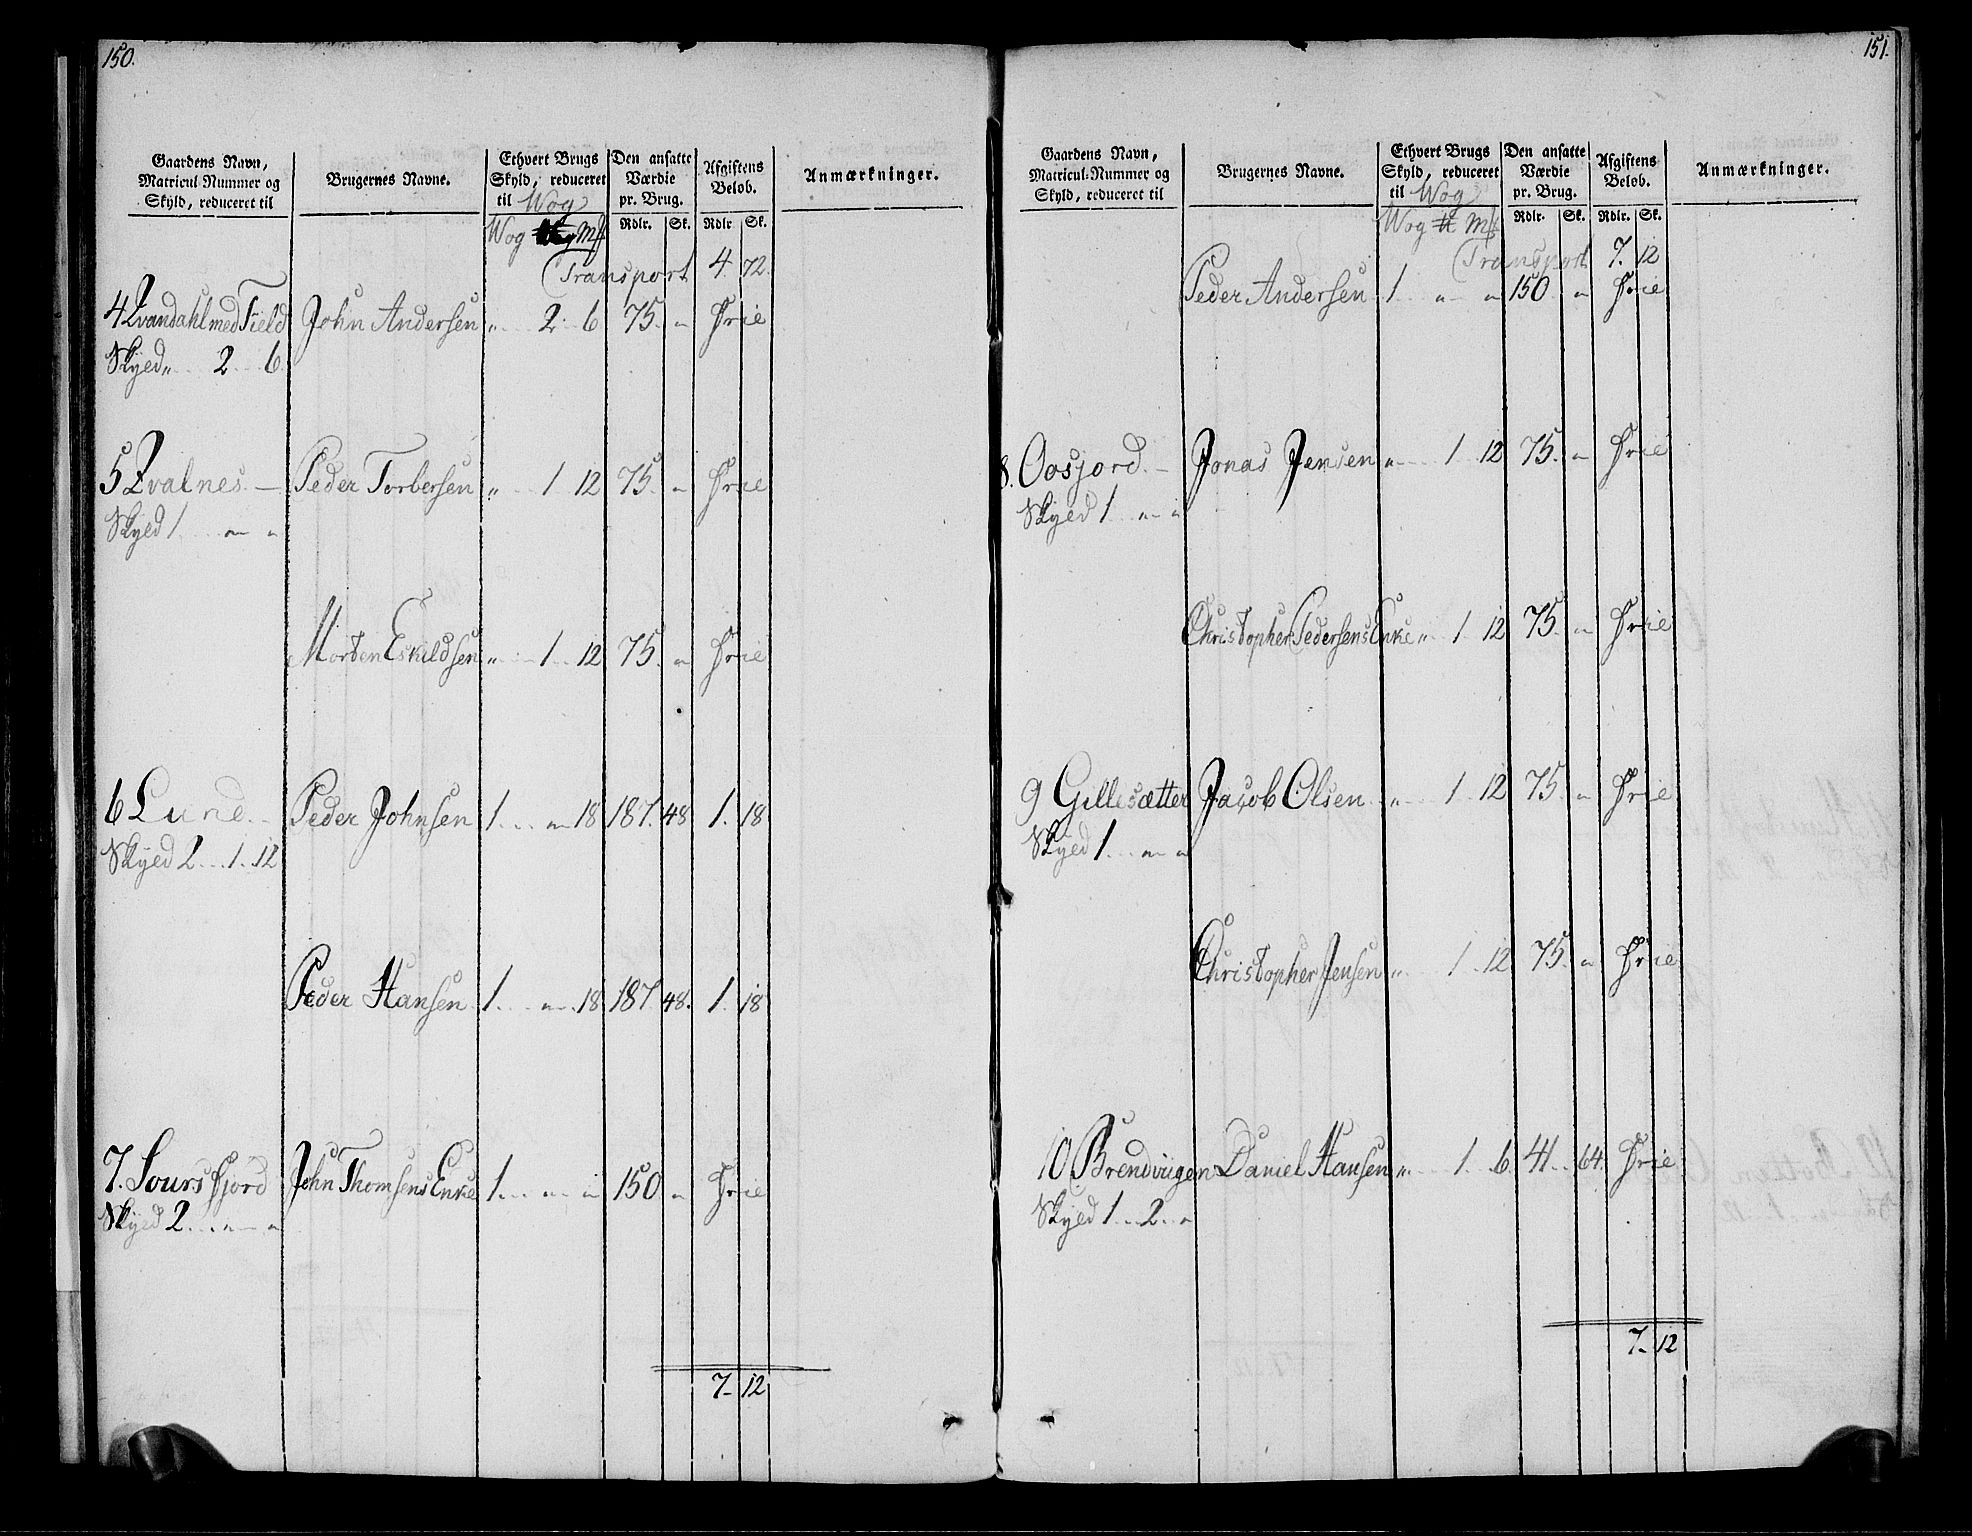 150.
Gaardens Navn, Matricul-Nummer og Skyld, reduceret til
Brugernes Navne.
Ethvert Brugs Skyld, reduceret til Wog
Den ansatte Værdie pr. Brug.
Afgiftens Beløb.
Anmærkninger.
Wog Mk Rdlr. Sk. Rdlr Sk.
Transport 4. 72.
4 Qvandahl med Field John Andersen " 2. 6 75. " Frie
Skyld " 2 6.
5 Qvalnes Peder Torbersen " 1 12 75. " Frie
Skyld 1 " "
Morten Eskildsen " 1 12 75. " Frie
6 Lund Peder Johnsen 1 " 18 187. 48 1. 18
Skyld 2 1 12
Peder Hansen 1 " 18 187 48. 1. 18
7. Sours Fjord John Thomsens Enke 1 " " 150 " Frie
Skyld 2 " "
7 12
151.
Gaardens Navn, Matricul-Nummer og Skyld, reduceret til
Brugernes Navne.
Ethvert Brugs Skyld, reduceret til Wog
Den ansatte Værdie pr. Brug.
Afgiftens Beløb.
Anmærkninger.
Wog ℔ Mk Rdlr. Sk. Rdlr. Sk.
Transport 7. 12
Peder Andersen 1 " " 150 " Frie
8. Oosjord Jonas Jensen " 1 12 75. " Frie
Skyld 1 " "
Christopher Pedersens Enke " 1 12 75. " Frie
9 Gillesætter Jacob Olsen " 1 12 75. " Frie
Skyld 1 " "
Christopher Jensen " 1 12 75. " Frie
10 Brendviigen Daniel Hansen " 1 6 41 64. Frie
Skyld 1 2 "
7 12